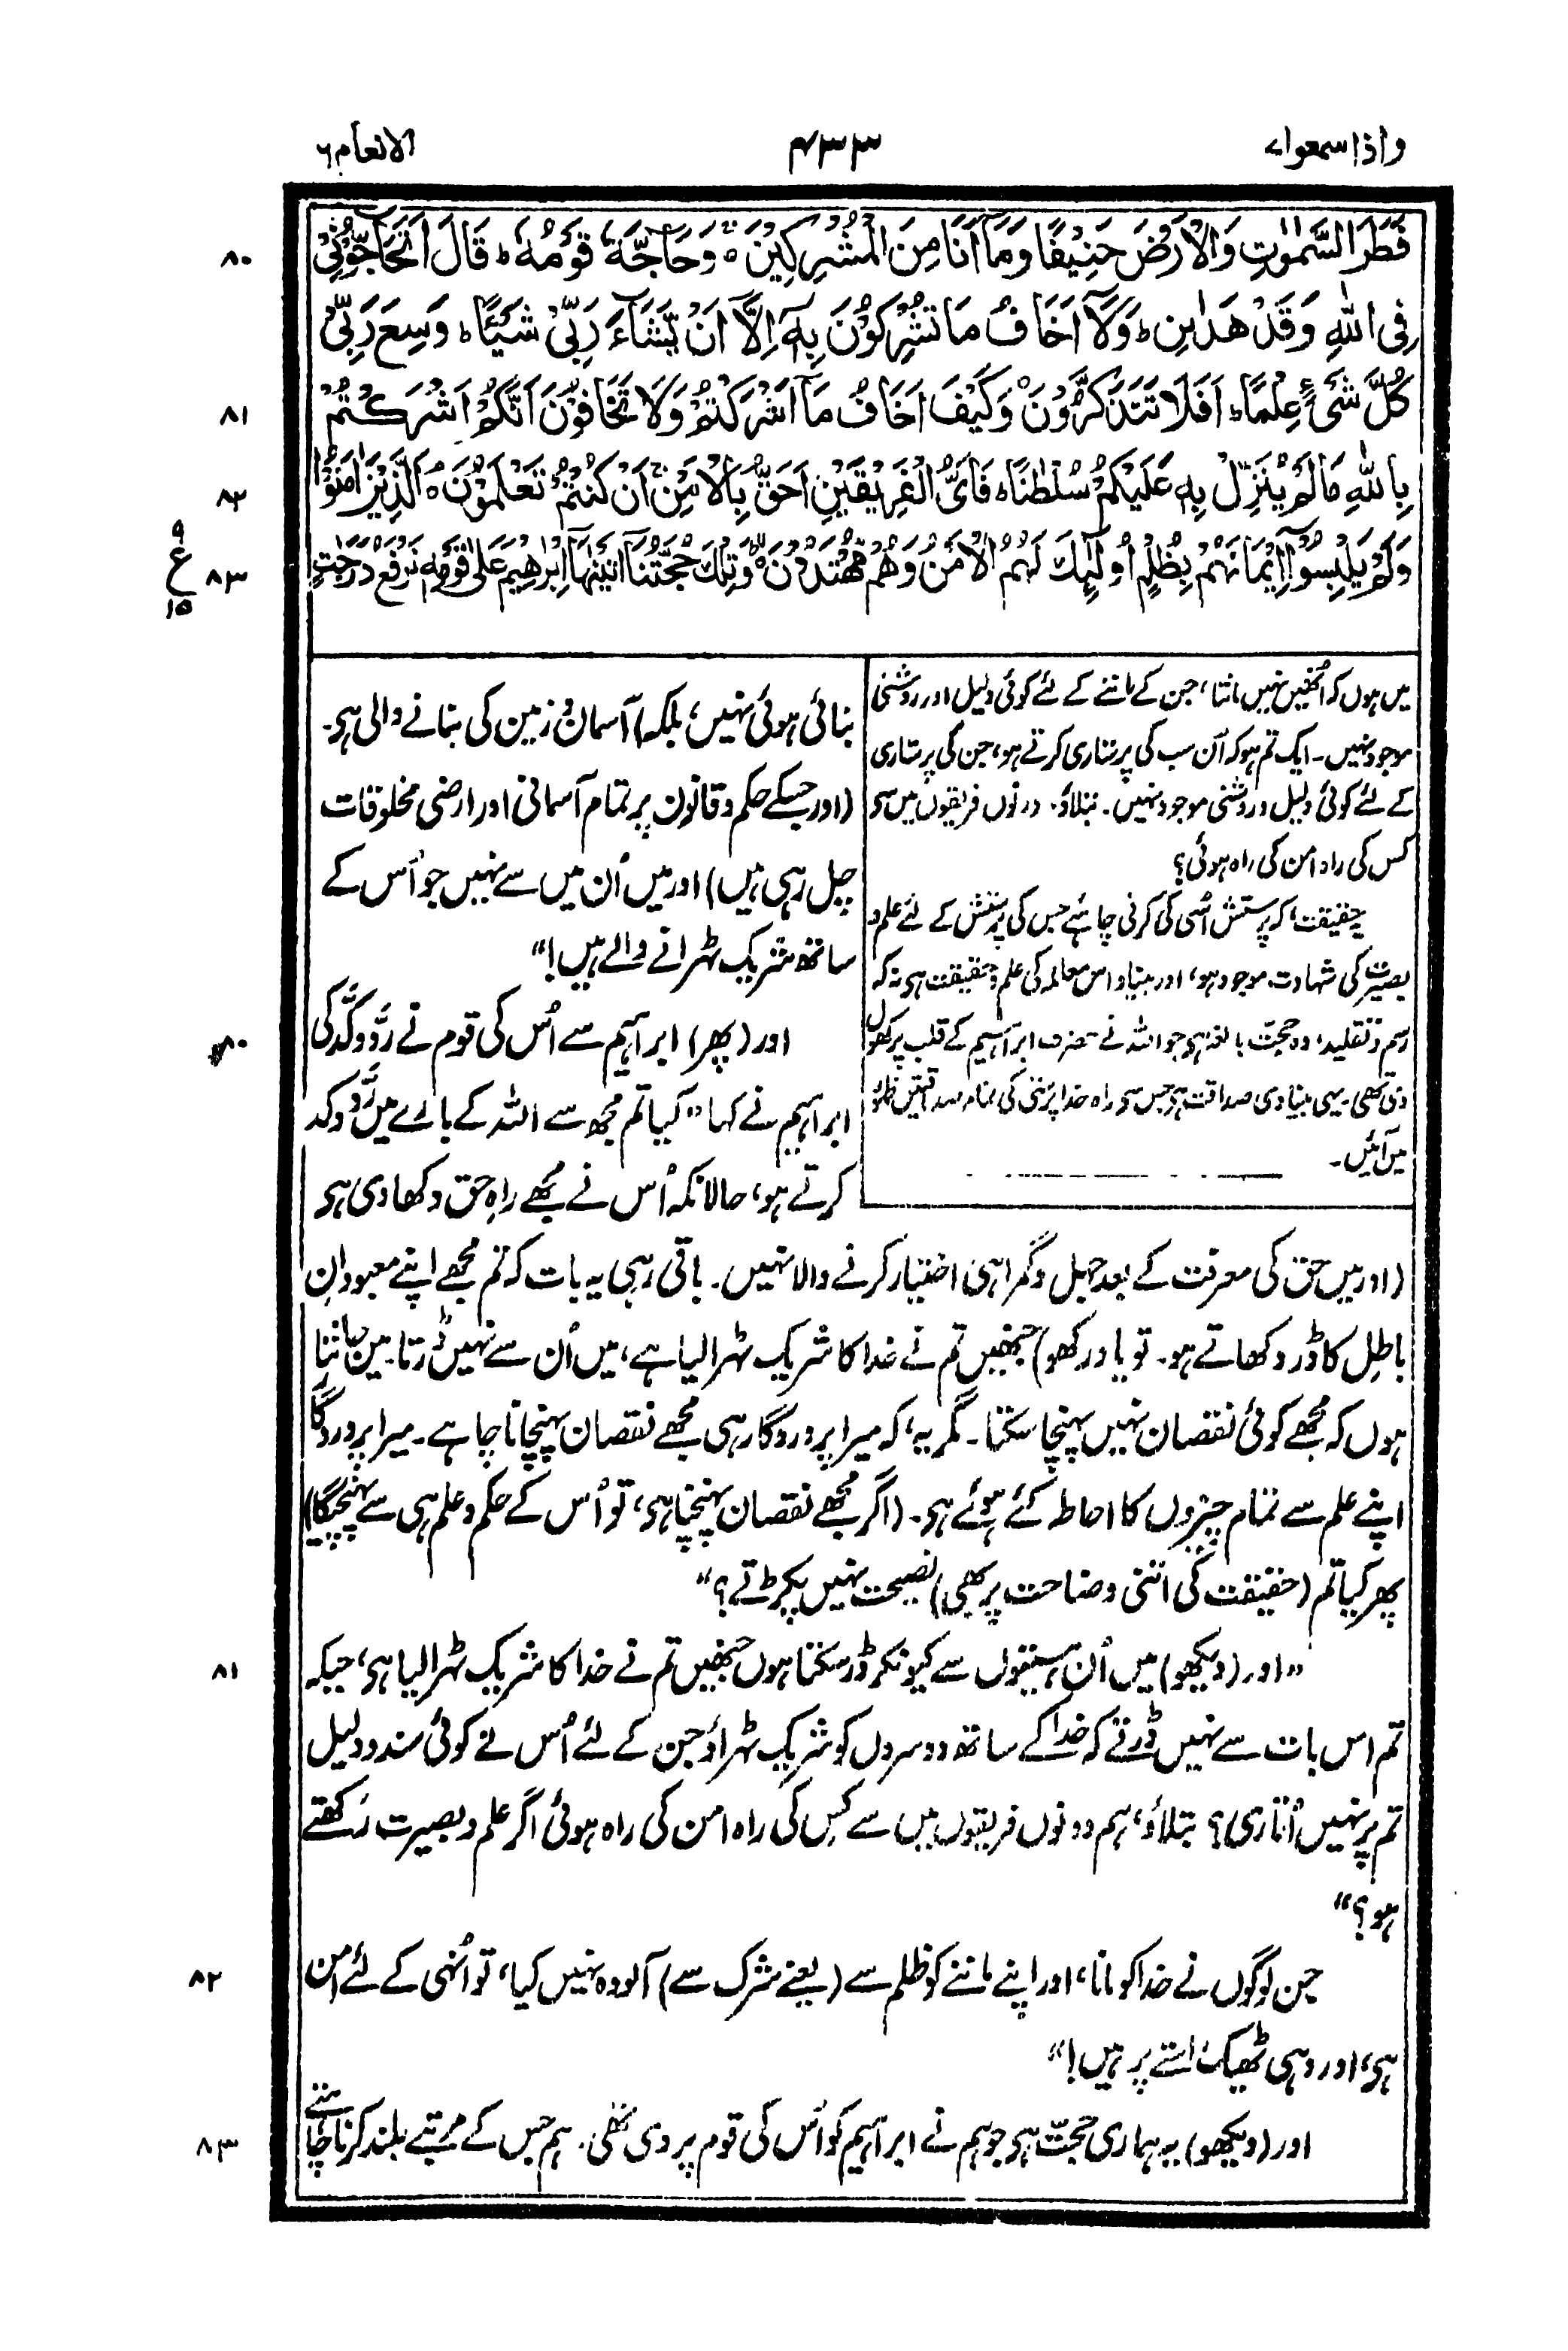 واذا سمعوا ۷
۴۳۳
الانعام ۶
فَطَرَ السَّمٰوٰتِ وَالْاَرْضَ حَنِيْفًا وَّمَآ اَنَا مِنَ الْمُشْرِكِيْنَ ۚ وَحَآجَّهٗ قَوْمُهٗ ؕ قَالَ اَتُحَآجُّوْٓنِّيْ
۸۰
فِى اللّٰهِ وَقَدْ هَدٰىنِ ؕ وَلَآ اَخَافُ مَا تُشْرِكُوْنَ بِهٖٓ اِلَّآ اَنْ يَّشَآءَ رَبِّيْ شَيْئًا ؕ وَسِعَ رَبِّيْ
كُلَّ شَيْءٍ عِلْمًا ؕ اَفَلَا تَتَذَكَّرُوْنَ ۝ وَكَيْفَ اَخَافُ مَآ اَشْرَكْتُمْ وَلَا تَخَافُوْنَ اَنَّكُمْ اَشْرَكْتُمْ
۸۱
بِاللّٰهِ مَا لَمْ يُنَزِّلْ بِهٖ عَلَيْكُمْ سُلْطٰنًا ؕ فَاَيُّ الْفَرِيْقَيْنِ اَحَقُّ بِالْاَمْنِ ۚ اِنْ كُنْتُمْ تَعْلَمُوْنَ ۘ اَلَّذِيْنَ اٰمَنُوْا
۸۲
وَلَمْ يَلْبِسُوْٓا اِيْمَانَهُمْ بِظُلْمٍ اُولٰٓئِكَ لَهُمُ الْاَمْنُ وَهُمْ مُّهْتَدُوْنَ ۝ وَتِلْكَ حُجَّتُنَآ اٰتَيْنٰهَآ اِبْرٰهِيْمَ عَلٰى قَوْمِهٖ ؕ نَرْفَعُ دَرَجٰتٍ
۸۳
۹
ع
۱۵
میں ہوں کہ اُنھیں نہیں مانتا، جن کے ماننے کے لئے کوئی دلیل اور روشنی
موجود نہیں۔ ایک تم ہو کہ اُن سب کی پرستاری کرتے ہو، جن کی پرستاری
کے لئے کوئی دلیل و روشنی موجود نہیں۔ بتلاؤ، دونوں فریقوں میں سو
کس کی راہ امن کی راہ ہوئی؟
یہ حقیقت، کہ پرستش اُسی کی کرنی چاہئے جس کی پرستش کے لئے علم و
بصیرت کی شہادت موجود ہو، اور بنیاد اس معاملہ کی علم و حقیقت ہی نہ کہ
رسم و تقلید، وہ حجت بالغہ ہی جو اللہ نے حضرت ابراہیم کے قلب پر کھول
دی تھی۔ یہی بنیادی صداقت ہی جس سو راہ خدا پرستی کی تمام صداقتیں ظہور
میں آئیں۔
بنائی ہوئی نہیں، بلکہ) آسمان و زمین کی بنانے والی ہی۔
(اور جسکے حکم و قانون پر تمام آسمانی اور ارضی مخلوقات
چل رہی ہیں) اور میں اُن میں سے نہیں جو اُس کے
ساتھ شریک ٹھہرانے والے ہیں!“
اور (پھر) ابراہیم سے اُس کی قوم نے رَدّ و کَد کی
۸۰
ابراہیم نے کہا ”کیا تم مجھ سے اللہ کے بارے میں رَدّ و کد
کرتے ہو، حالانکہ اُس نے مجھے راہِ حق دکھا دی ہی
(اور میں حق کی معرفت کے بعد جہل و گمراہی اختیار کرنے والا نہیں۔ باقی رہی یہ بات کہ تم مجھے اپنے معبودانِ
باطل کا ڈر دکھاتے ہو۔ تو یاد رکھو) جنھیں تم نے خدا کا شریک ٹھہرا لیا ہے، میں اُن سے نہیں ڈرتا۔ میں جانتا
ہوں کہ مجھے کوئی نقصان نہیں پہنچا سکتا۔ مگر یہ، کہ میرا پروردگار ہی مجھے نقصان پہنچانا چاہے۔ میرا پروردگار
اپنے علم سے تمام چیزوں کا احاطہ کئے ہوئے ہی۔ (اگر مجھے نقصان پہنچنا ہی، تو اُس کے حکم و علم ہی سے پہنچیگا)
پھر کیا تم (حقیقت کی اتنی وضاحت پر بھی) نصیحت نہیں پکڑتے؟“
”اور (دیکھو) میں اُن ہستیوں سے کیونکر ڈر سکتا ہوں جنھیں تم نے خدا کا شریک ٹھہرا لیا ہی، جبکہ
۸۱
تم اس بات سے نہیں ڈرتے کہ خدا کے ساتھ دوسروں کو شریک ٹھہراؤ جن کے لئے اُس نے کوئی سند و دلیل
تم پر نہیں اُتاری؟ بتلاؤ، ہم دونوں فریقوں میں سے کس کی راہ امن کی راہ ہوئی اگر علم و بصیرت رکھتے
ہو؟“
جن لوگوں نے خدا کو مانا، اور اپنے ماننے کو ظلم سے (یعنے شرک سے) آلودہ نہیں کیا، تو اُنہی کے لئے امن
۸۲
ہی، اور وہی ٹھیک راستے پر ہیں!“
اور (دیکھو) یہ ہماری حجّت ہی جو ہم نے ابراہیم کو اُس کی قوم پر دی تھی۔ ہم جس کے مرتبے بلند کرنا چاہتے
۸۳